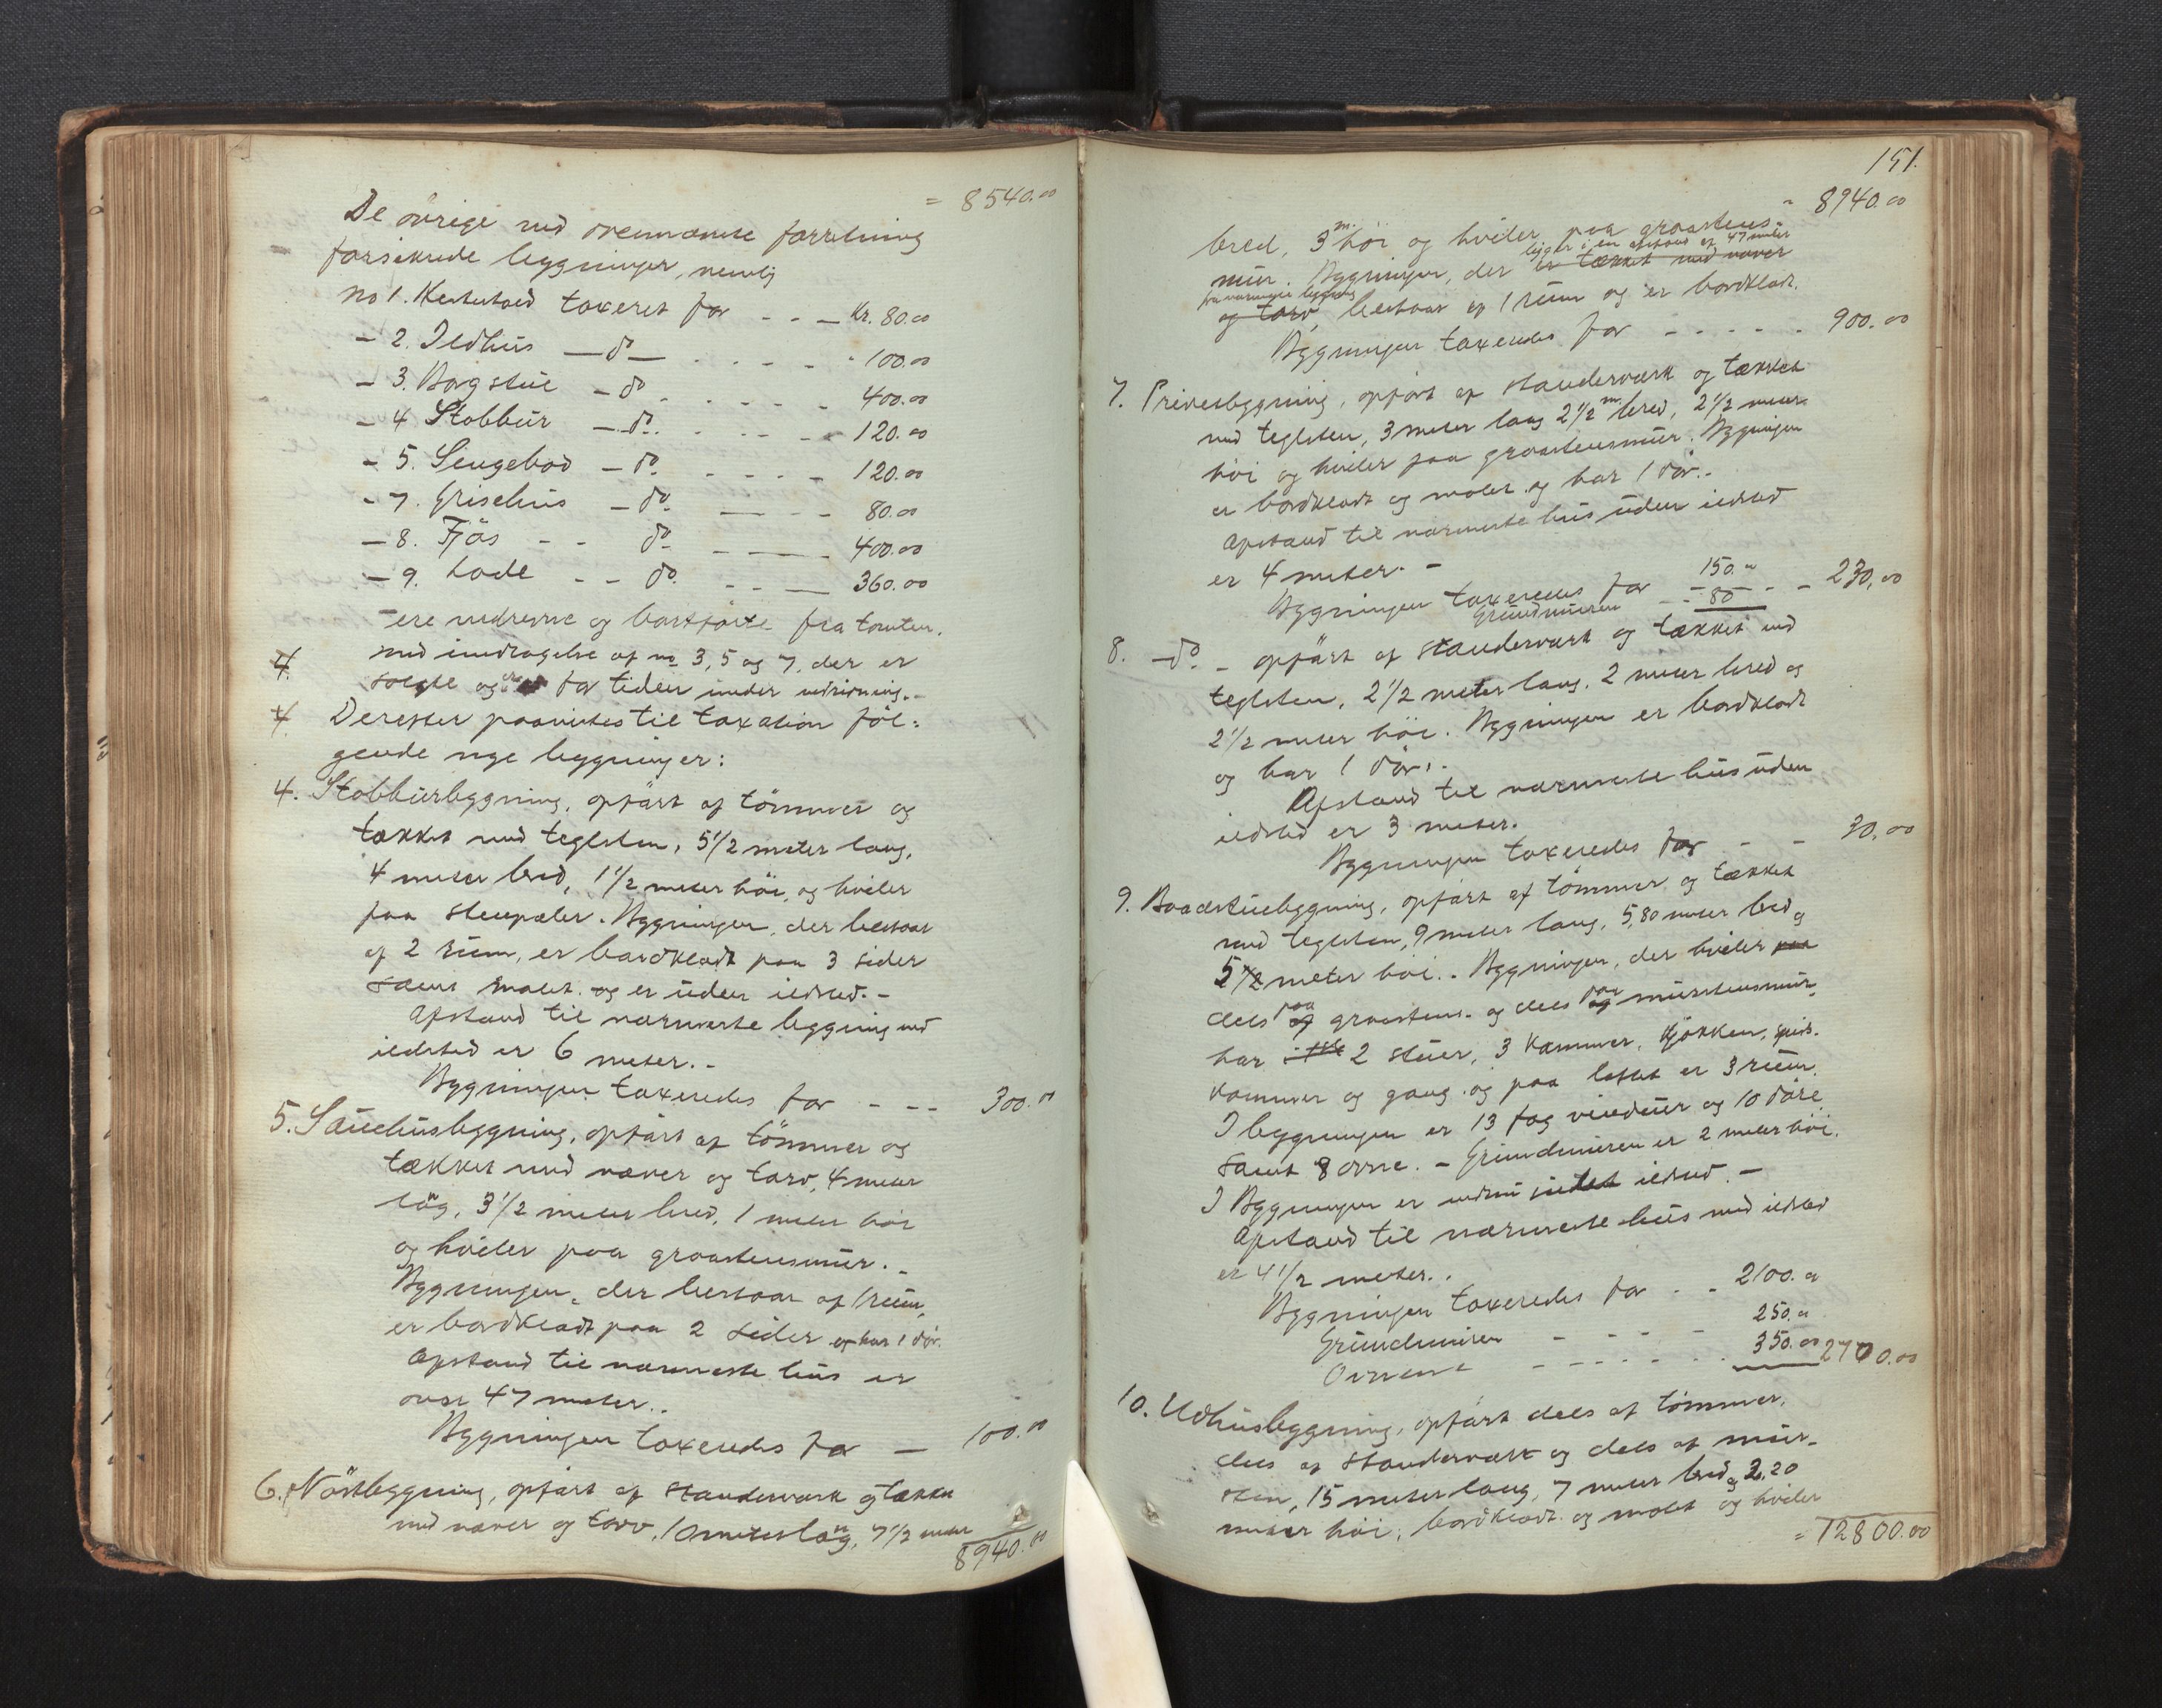 = 8540.00
De øvrige ved ovennævnte forretning
forsikrede bygninger, nemlig
No 1. Hestestald taxeret for - - - Kr. 80.00
- 2. Ildhus - do - . . . . 100.00
- 3. Borgstue - do . . . . . 400.00
- 4 Stobbur - do. . . . . 120.00
- 5. Sengebod - do. . . . . 120.00
- 7. Grisehus - do. - - - 80.00
- 8. Fjøs - - do. - - - 400.00
- 9. Lade - - do. - - - 360.00
ere nedrevne og bortførte fra tomten.
med inddragelse af no 3, 5 og 7, der er
solgte og er for tiden under nedrivning.-
4. Derefter paavistes til taxation føl=
gende nye bygninger:
4. Stobbursbygning, opført af tømmer og
tækket med teglsten, 5 1/2 meter lang,
4 meter bred, 1 1/2 meter høi, og hviler
paa stenpæler. Bygningen, der bestaar
af 2 rum, er bordklædt paa 3 sider
samt malet. og er uden ildsted.-
Afstand til nærmeste bygning med
ildsted er 6 meter.-
Bygningen taxeredes for - - - 300.00
5. Sauehusbygning, opført af tømmer og
tækket med næver og torv, 4 meter
lang, 3 1/2 meter bred, 1 meter høi
og hviler paa graastensmur.-
Bygningen, der bestaar af 1 rum,
er bordklædt paa 2 sider og har 1 dør.
Afstand til nærmeste hus er
over 47 meter..
Bygningen taxeredes for - 100.00
6. Nøstbygning, opført af standerværk og tække
med næver og torv, 10 meter lang, 7 1/2 meter
8940.00
151.
= 8940.00
bred, 3 m. høi og hviler paa graastens-
ligger i en afstand af 47 meter
mur. Bygningen, der er tækket med næver
fra nærmeste bygning
og torv, bestaar af 1 rum og er bordklædt.
Bygningen taxeredes for - - - - - 900.00
7. Privetbygning, opført af standerværk og tækket
med teglsten, 3 meter lang 2 1/2 m. bred, 2 1/2 meter
høi og hviler paa graastensmur. Bygningen
er bordklædt og malet og har 1 dør.-
Afstand til nærmeste hus uden ildsted
er 4 meter.-
Bygningen taxeredes for 150.00
Grundmuren - - 80 - - 230.00
8. -do.- opført af standerværk og tækket med
teglsten, 2 1/2 meter lang, 2 meter bred og
2 1/2 meter høi. Bygningen er bordklædt
og har 1 dør.-
Afstand til nærmeste hus uden
ildsted er 3 meter.
Bygningen taxeredes for - - 30.00
9. Vaadstuebygning, opført af tømmer og tækket
med teglsten, 9 meter lang, 5,80 meter bred og
5 1/2 meter høi.. Bygningen, der hviler paa
dels paa graastens- og dels paa murstensmur,
har 2 stuer, 3 kammer, kjøkken, spis-
kammer og gang og paa loftet er 3 rum.
I bygningen er 13 fag vinduer og 10 døre
samt 8 ovne. - Grundmuren er 2 meter høi.
I Bygningen er ildsted.-
Afstand til nærmeste hus med ildsted
er 4 1/2 meter..
Bygningen taxeredes for - - 2100.00
Grundmuren - - - - 250.00
Ovnene - - - - - - 350.00 2700.00
10. Udhusbygning, opført dels af tømmer,
dels af standerværk og dels af mur-
sten, 15 meter lang, 7 meter bred og 3,20
meter høi, bordklædt og malet og hviler
= 12800.00